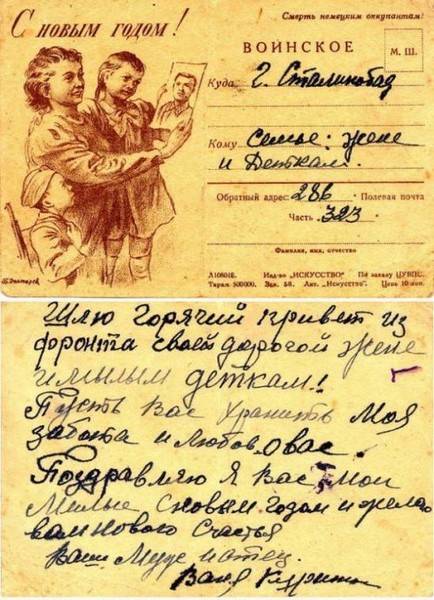 С новым годом!
Смерть немецким оккупантам!
ВОИНСКОЕ
М. Ш.
Куда г. Сталинобад
Кому семье: жене
и деткам.
Обратный адрес: 286 Полевая почта
Часть 323
Фамилия, имя, отчество
Изд-во „ИСКУССТВО" По заказу
Тираж 500000. Зак. Лит. „Искусство". Цена 10 коп.
Шлю горячий привет из
фронта своей дорогой жене
и милым деткам!
Пусть вас хранить моя
забота и любов о вас!
Поздравляю я вас мои
милые с новым годом и желаю
вам нового счастья
Ваш муж и отец.
Ваня